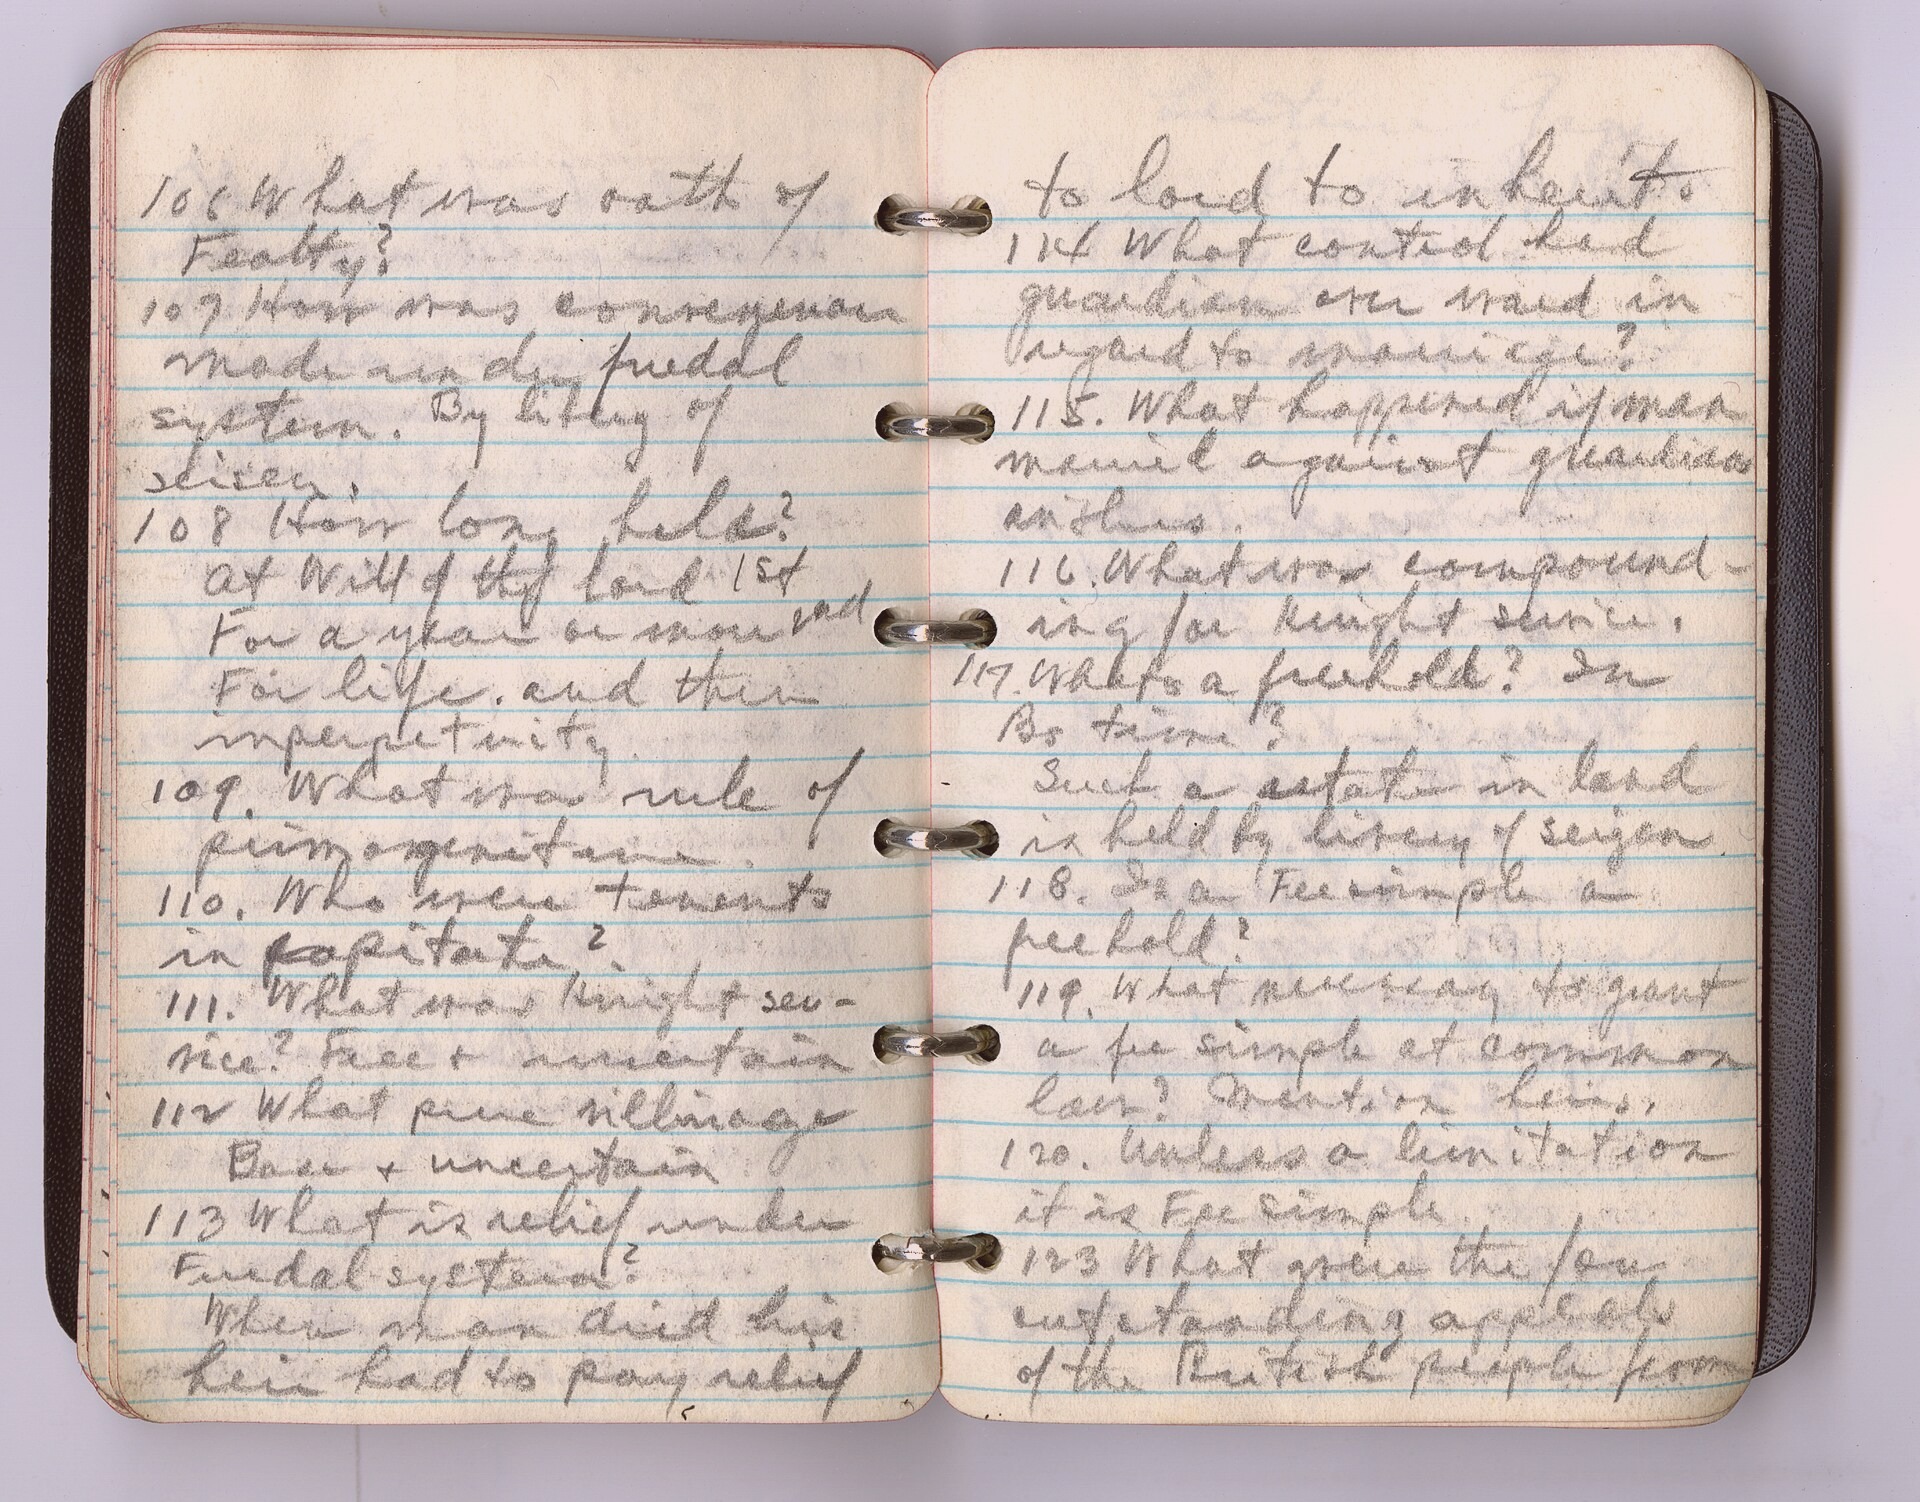 106 What was oath of
Fealty?
107 How was conveyence
made under fuedal
system. By livery of
seisen.
108 How long held?
At Will of the lord 1st
For a year or more 2nd
For life. and then
inperpetuity
109. What was rule of
primogeniture.
110. Who were tenents
in capitate?
111. What was Knight ser-
vice? Free + uncertain
112 What pure villinage
Base + uncertain
113 What is relief under
Fuedal system?
When man died his
heir had to pay relief
to lord to inherit.
114 What control had
guardian over ward in
regard to marriage?
115. What happened if man
married against guardian
wishes.
116. What was compound-
ing for Knight service.
117. What is a freehold? In
time?
Such a estate in land
is held by livery of seizen.
118. Is a Fee simple a
freehold?
119. What necessary to grant
a fee simple at common
law? Mention heirs.
120. Unless a limitation
it is Fee Simple.
123 What were the four
outstanding appeals
of the British people from